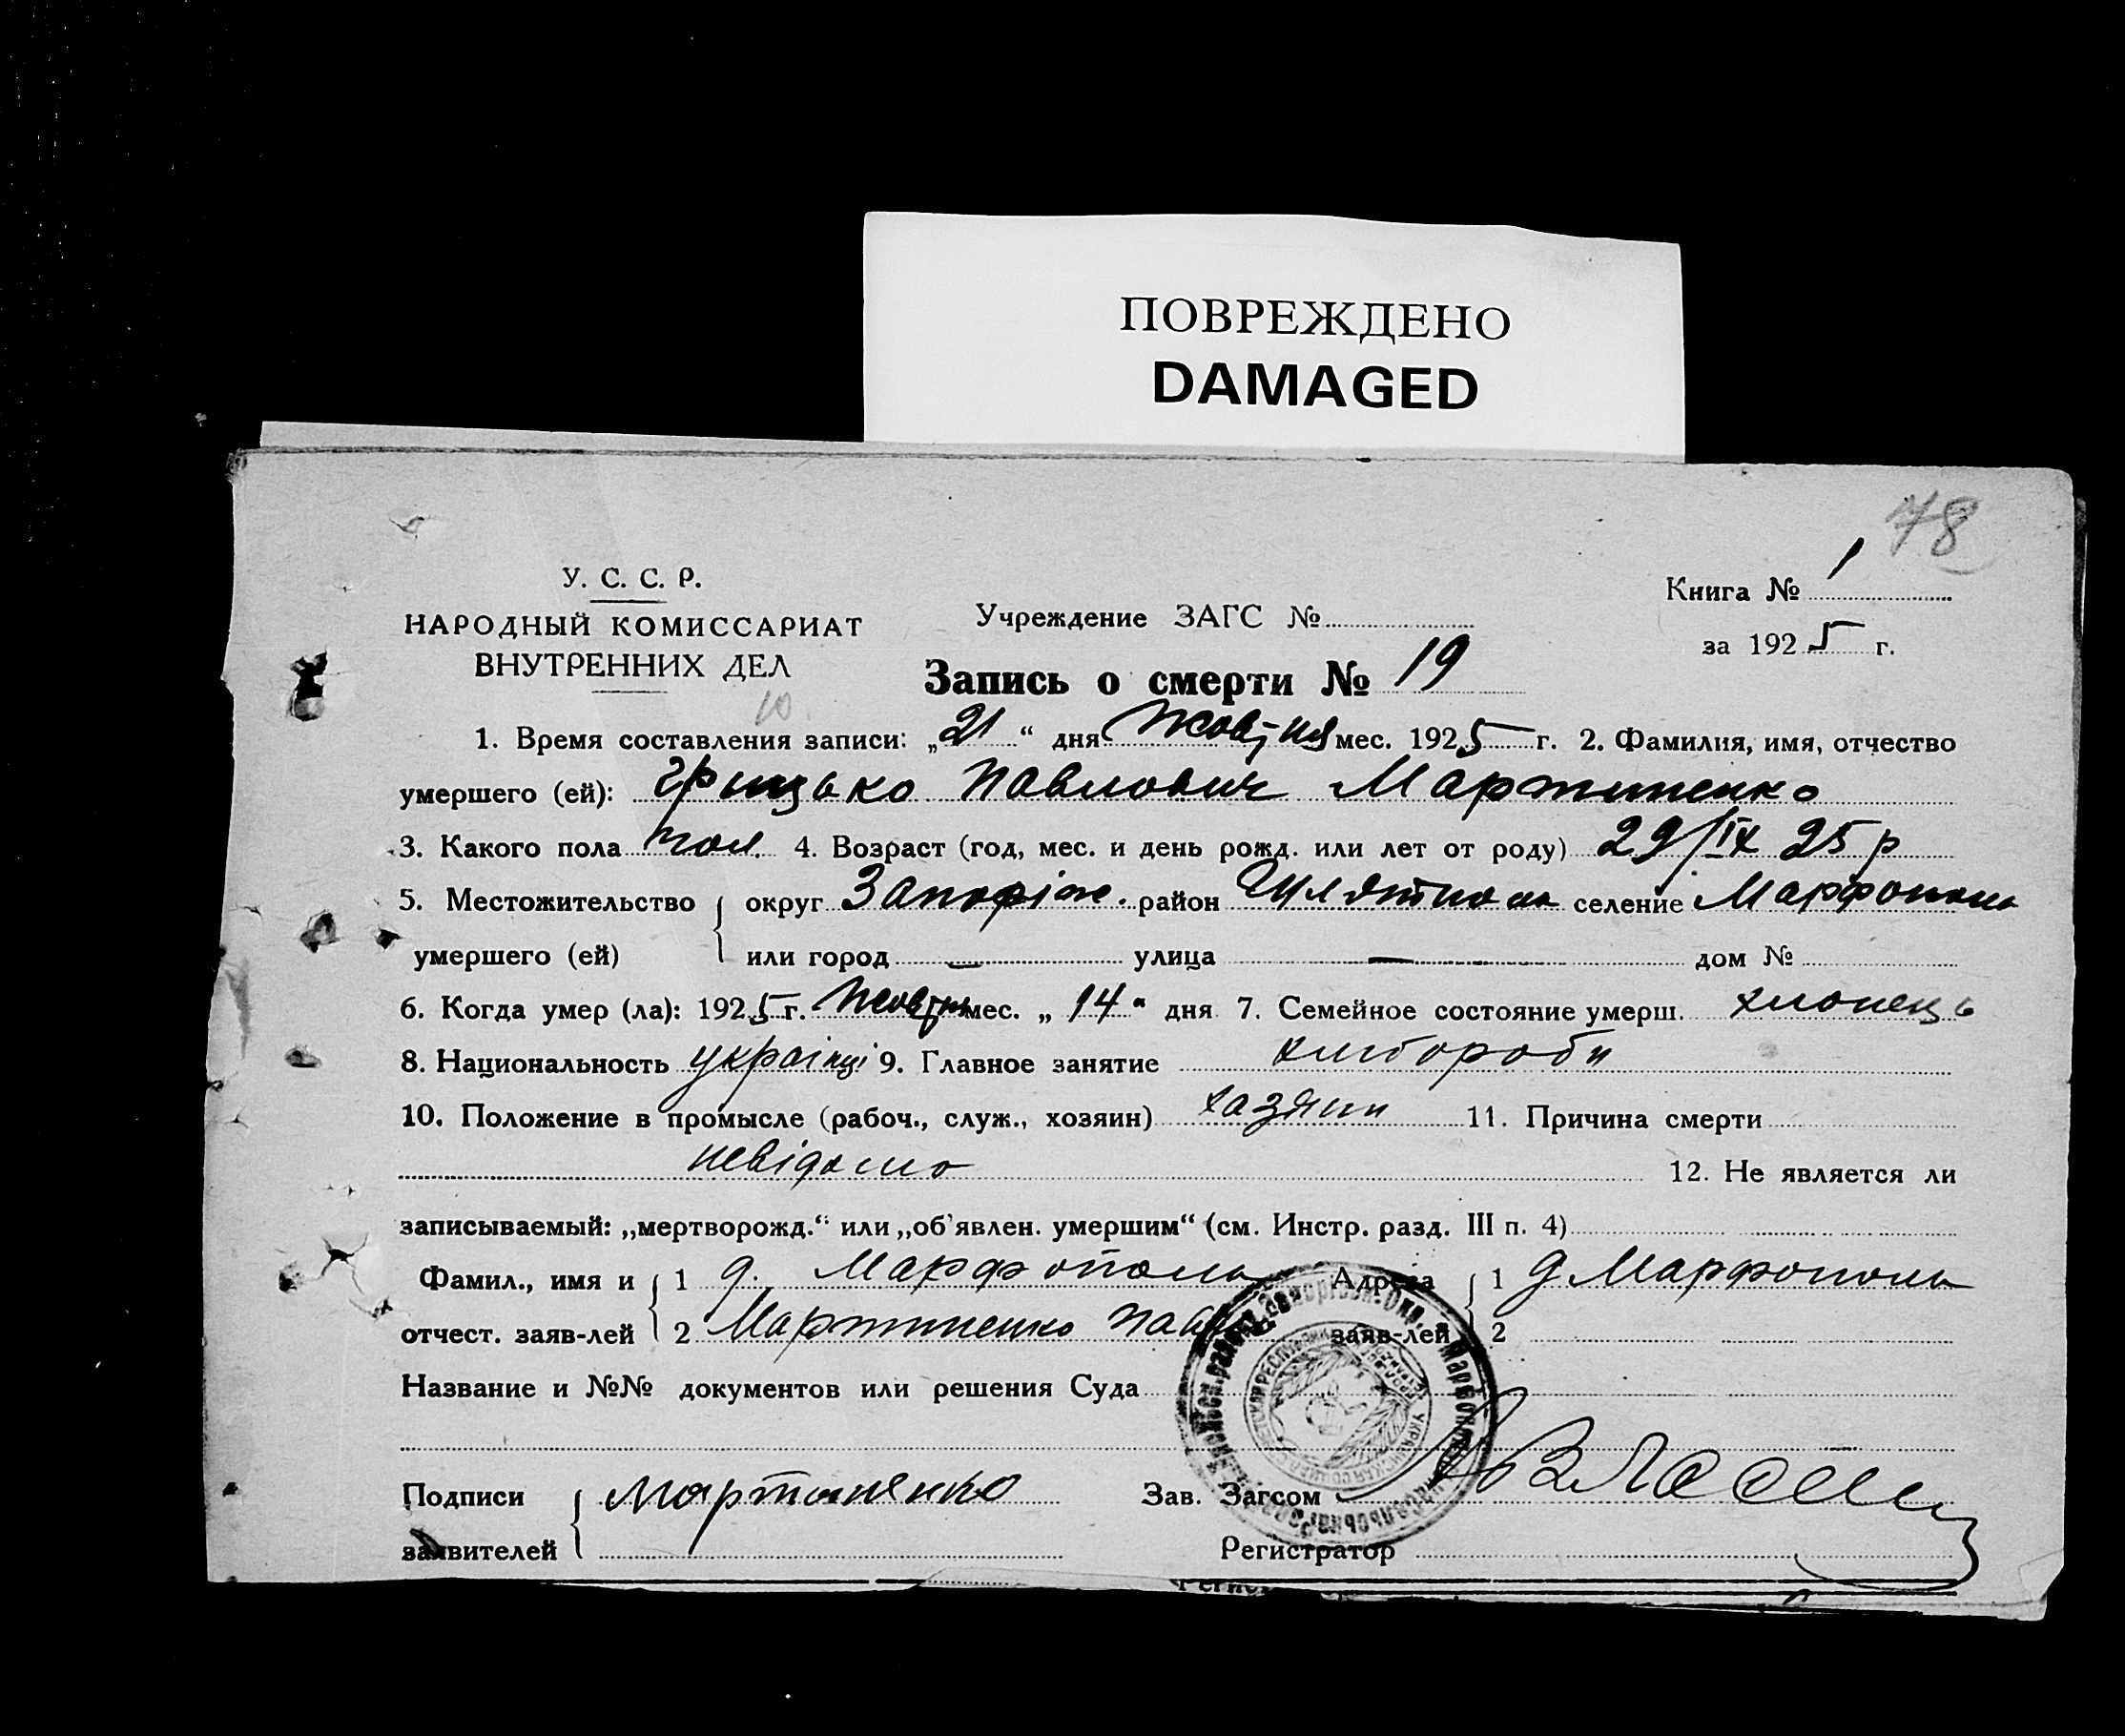 ПОВРЕЖДЕНО
DAMAGED
78
У. С. С. Р.
НАРОДНЫЙ КОМИССАРИАТ
ВНУТРЕННИХ ДЕЛ
Учреждение ЗАГС №
Книга № 1
за 1925 г.
Запись о смерти № 19
10
1. Время составления записи: „21“ дня Жовтня мес. 1925 г. 2. Фамилия, имя, отчество
умершего (ей): Грицько Павлович Мартиненко
3. Какого пола чол. 4. Возраст (год, мес. и день рожд. или лет от роду) 29/IX 25 р
5. Местожительство округ Запоріж. район селение Марфополь
умершего (ей) или город — улица — дом №
6. Когда умер (ла): 1925 г. Жовтн мес. „14“ дня 7. Семейное состояние умерш. хлопець
8. Национальность українці 9. Главное занятие хлібороби
10. Положение в промысле (рабоч., служ., хозяин) хазяин 11. Причина смерти
невідомо 12. Не является ли
записываемый: „мертворожд.“ или „об'явлен. умершим“ (см. Инстр. разд. III п. 4)
Фамил., имя и 1 д. Марфополь Адреса 1 д Марфополь
отчест. заяв-лей 2 Мартиненко Пав заяв-лей 2
Название и №№ документов или решения Суда
Подписи Мартиненко Зав. Загсом
заявителей Регистратор